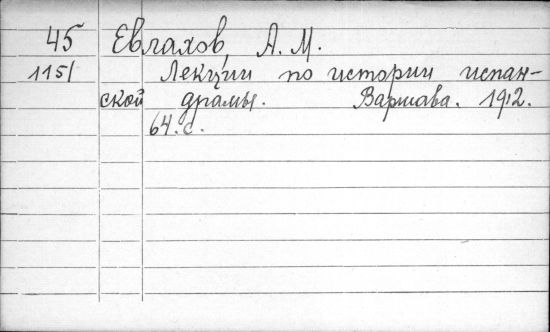 45 Евлахов, А. М.
1151 Лекции по истории испан-
ской драмы. Варшава. 1912.
64. с.